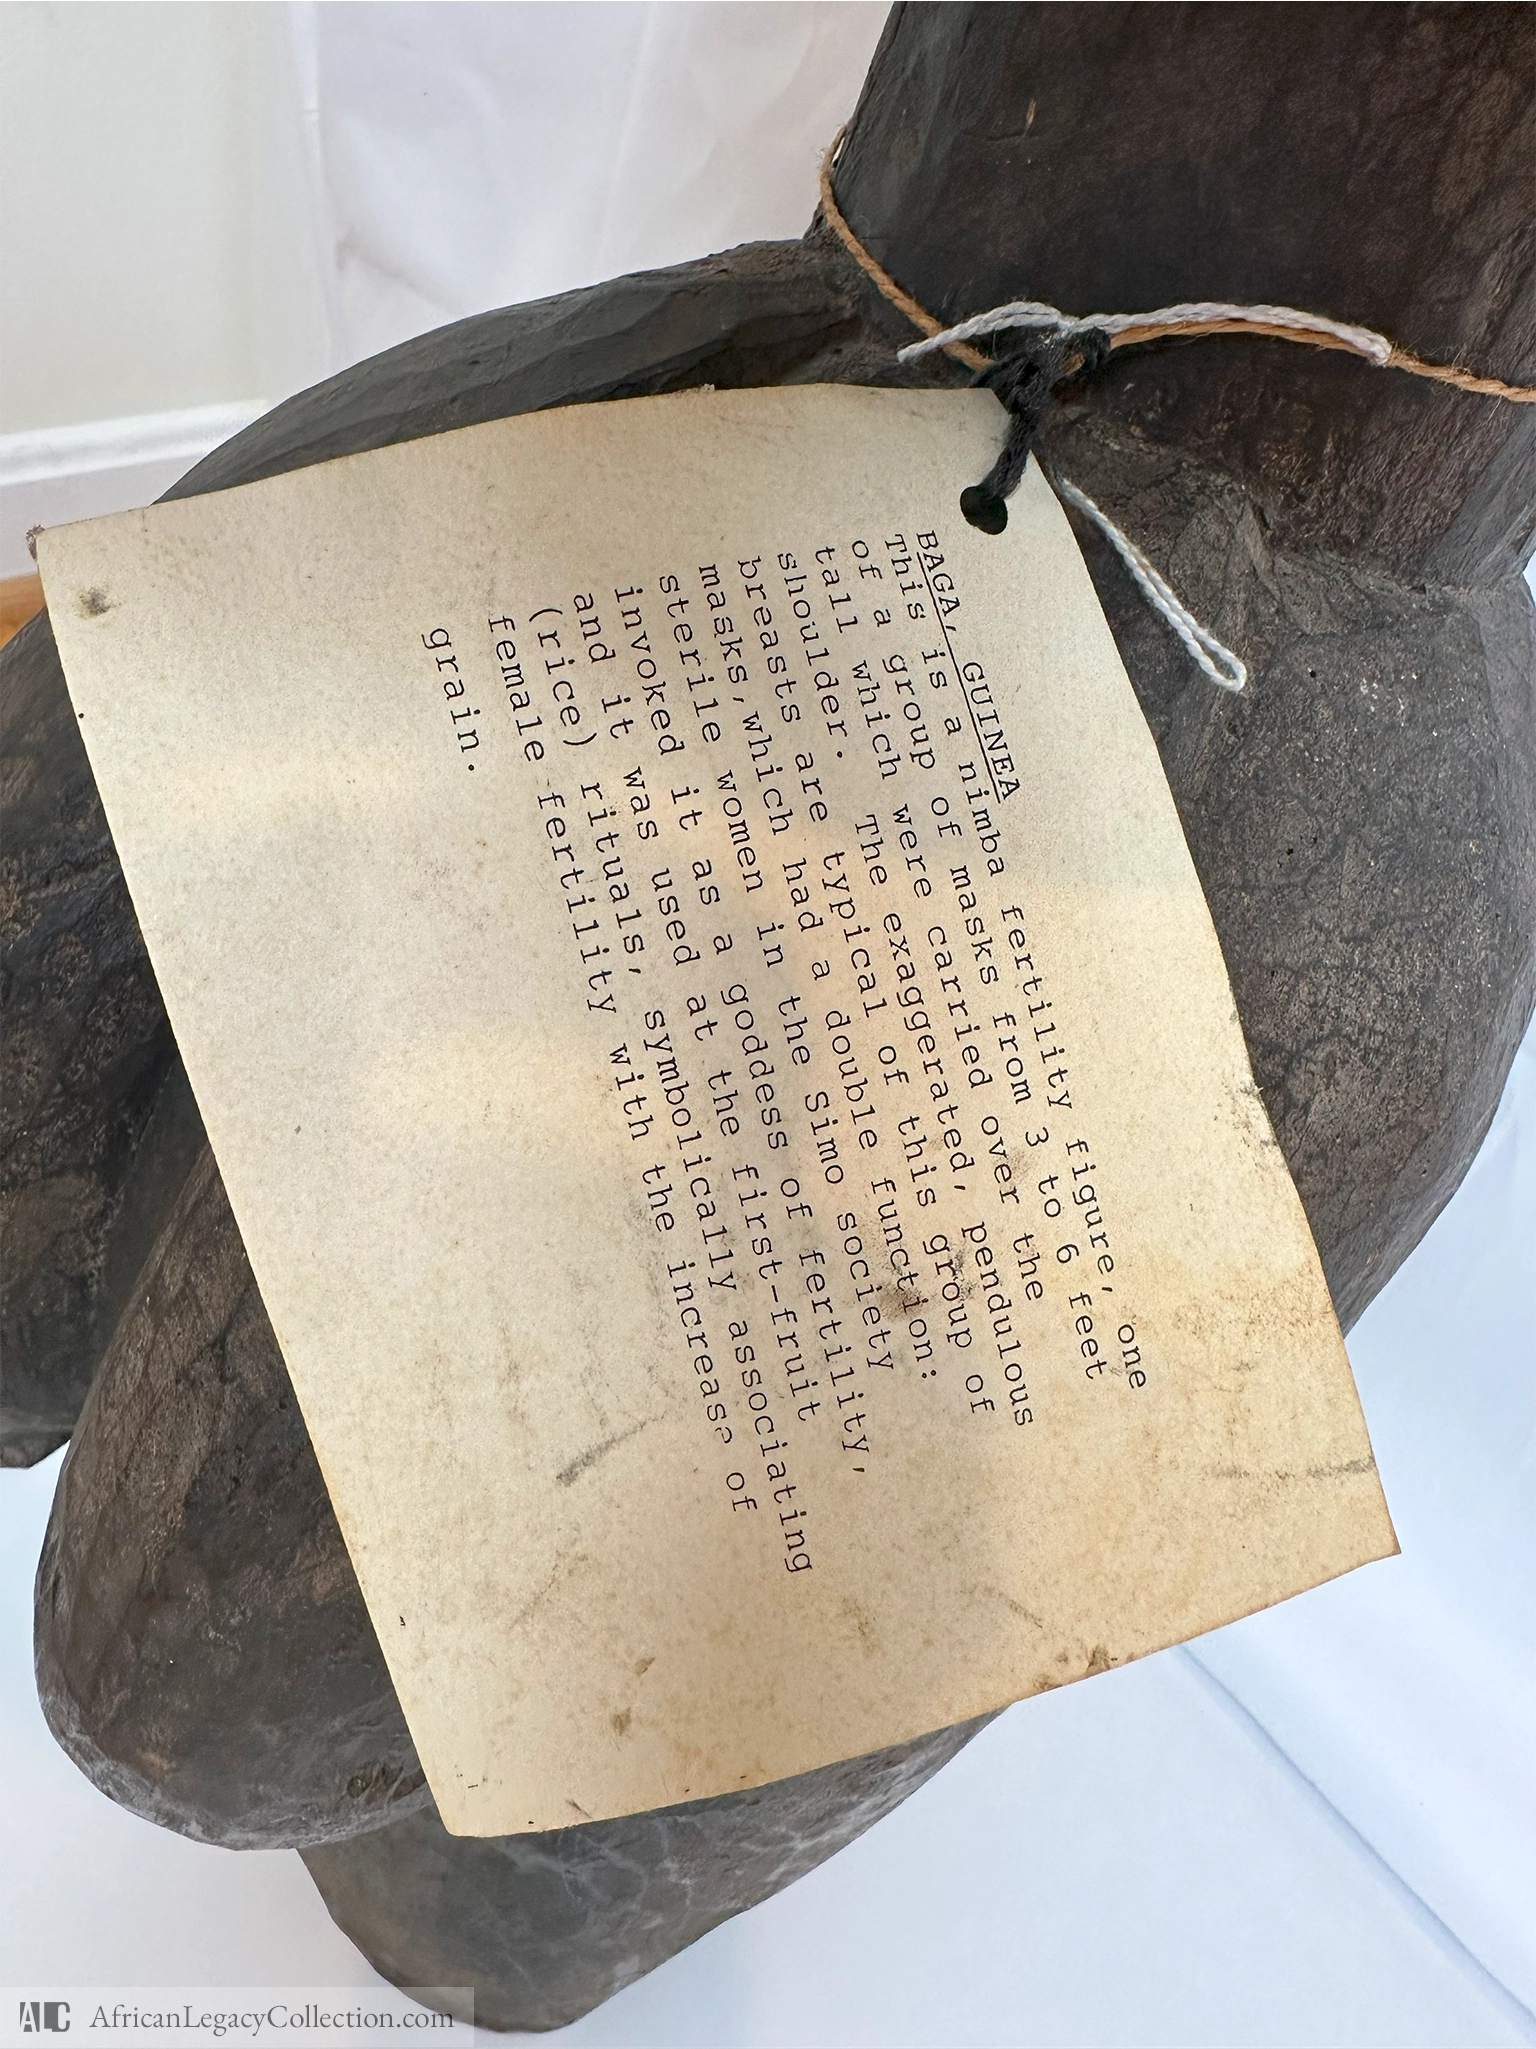 BAGA, GUINEA
This is a nimba fertility figure, one
of a group of masks from 3 to 6 feet
tall which were carried over the
shoulder. The exaggerated, pendulous
breasts are typical of this group of
masks, which had a double function:
sterile women in the Simo society
invoked it as a goddess of fertility,
and it was used at the first-fruit
(rice) rituals, symbolically associating
female fertility with the increase of
grain.
ALC AfricanLegacyCollection.com